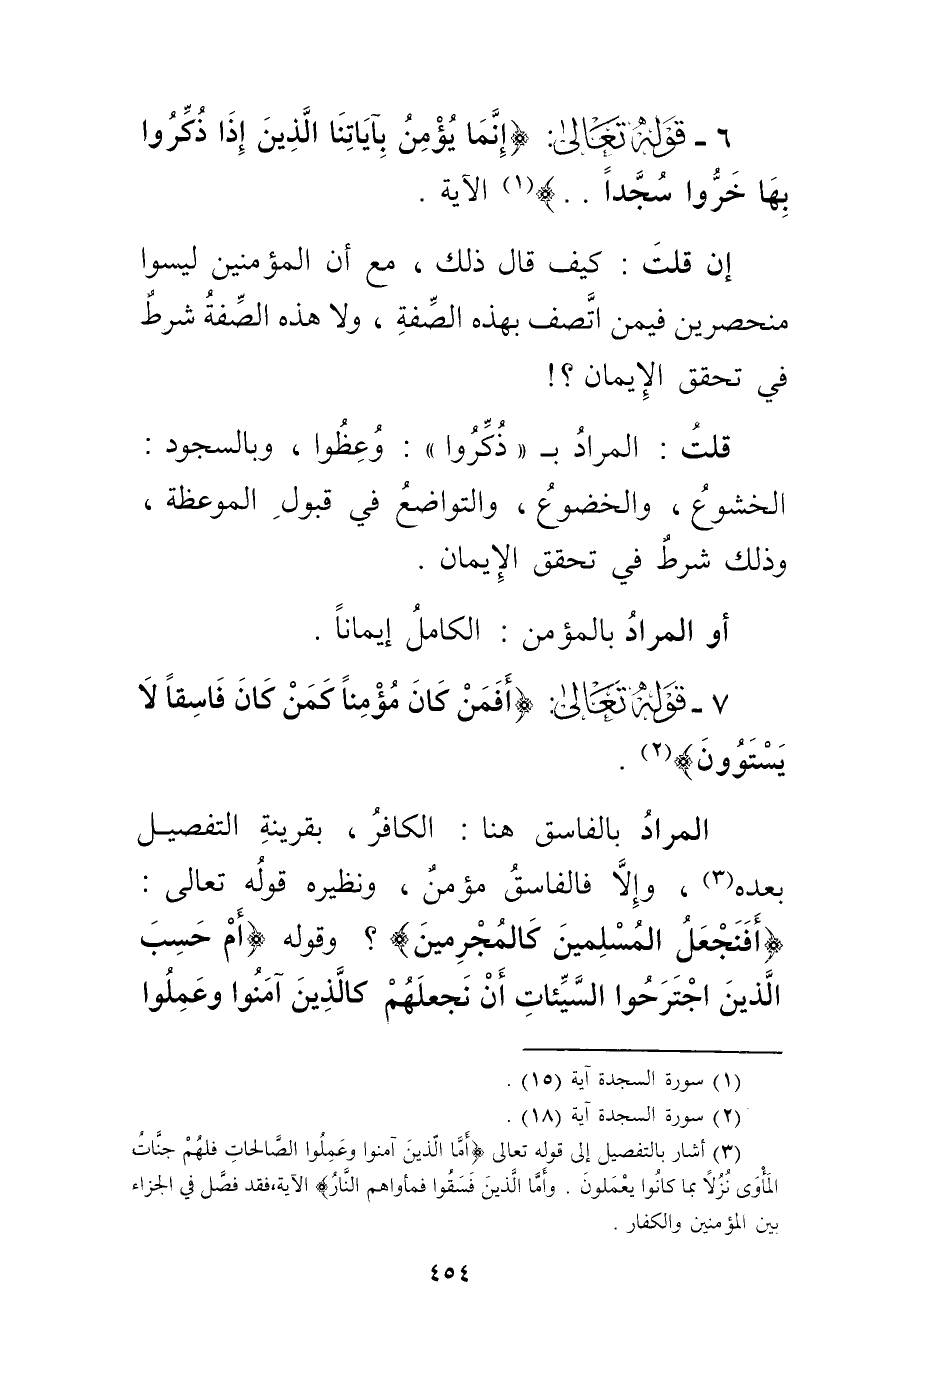 ٦ ـ قَوْلُهُ تَعَالَىٰ: ﴿إِنَّمَا يُؤْمِنُ بِآيَاتِنَا الَّذِينَ إِذَا ذُكِّرُوا
بِهَا خَرُّوا سُجَّداً . . ﴾(١) الآية .
إن قلتَ : كيف قال ذلك ، مع أن المؤمنين ليسوا
منحصرين فيمن اتَّصف بهذه الصِّفةِ ، ولا هذه الصِّفةُ شرطٌ
في تحقق الإِيمان ؟!
قلتُ : المرادُ بـ « ذُكِّرُوا » : وُعِظُوا ، وبالسجود :
الخشوعُ ، والخضوعُ ، والتواضعُ في قبولِ الموعظة ،
وذلك شرطٌ في تحقق الإِيمان .
أو المرادُ بالمؤمن : الكاملُ إيماناً .
٧ ـ قَوْلُهُ تَعَالَىٰ: ﴿أَفَمَنْ كَانَ مُؤْمِناً كَمَنْ كَانَ فَاسِقاً لَا
يَسْتَوُونَ﴾(٢) .
المرادُ بالفاسق هنا : الكافرُ ، بقرينةِ التفصيل
بعده(٣) ، وإِلَّا فالفاسقُ مؤمنٌ ، ونظيره قولُه تعالى :
﴿أَفَنَجْعَلُ المُسْلِمينَ كَالمُجْرِمينَ﴾ ؟ وقوله ﴿أَمْ حَسِبَ
الَّذينَ اجْتَرَحُوا السَّيِّئاتِ أَنْ نَجعلَهُمْ كالَّذِينَ آمَنُوا وعَمِلُوا
(١) سورة السجدة آية (١٥) .
(٢) سورة السجدة آية (١٨) .
(٣) أشار بالتفصيل إلى قوله تعالى ﴿أَمَّا الّذينَ آمنوا وعَمِلُوا الصَّالحاتِ فلهُمْ جنَّاتُ
المَأْوَى نُزُلًا بما كانُوا يعْمَلونَ . وأَمَّا الَّذينَ فَسَقُوا فمأواهم النَّارُ﴾ الآية،فقد فصَّل في الجزاء
بين المؤمنين والكفار .
٤٥٤